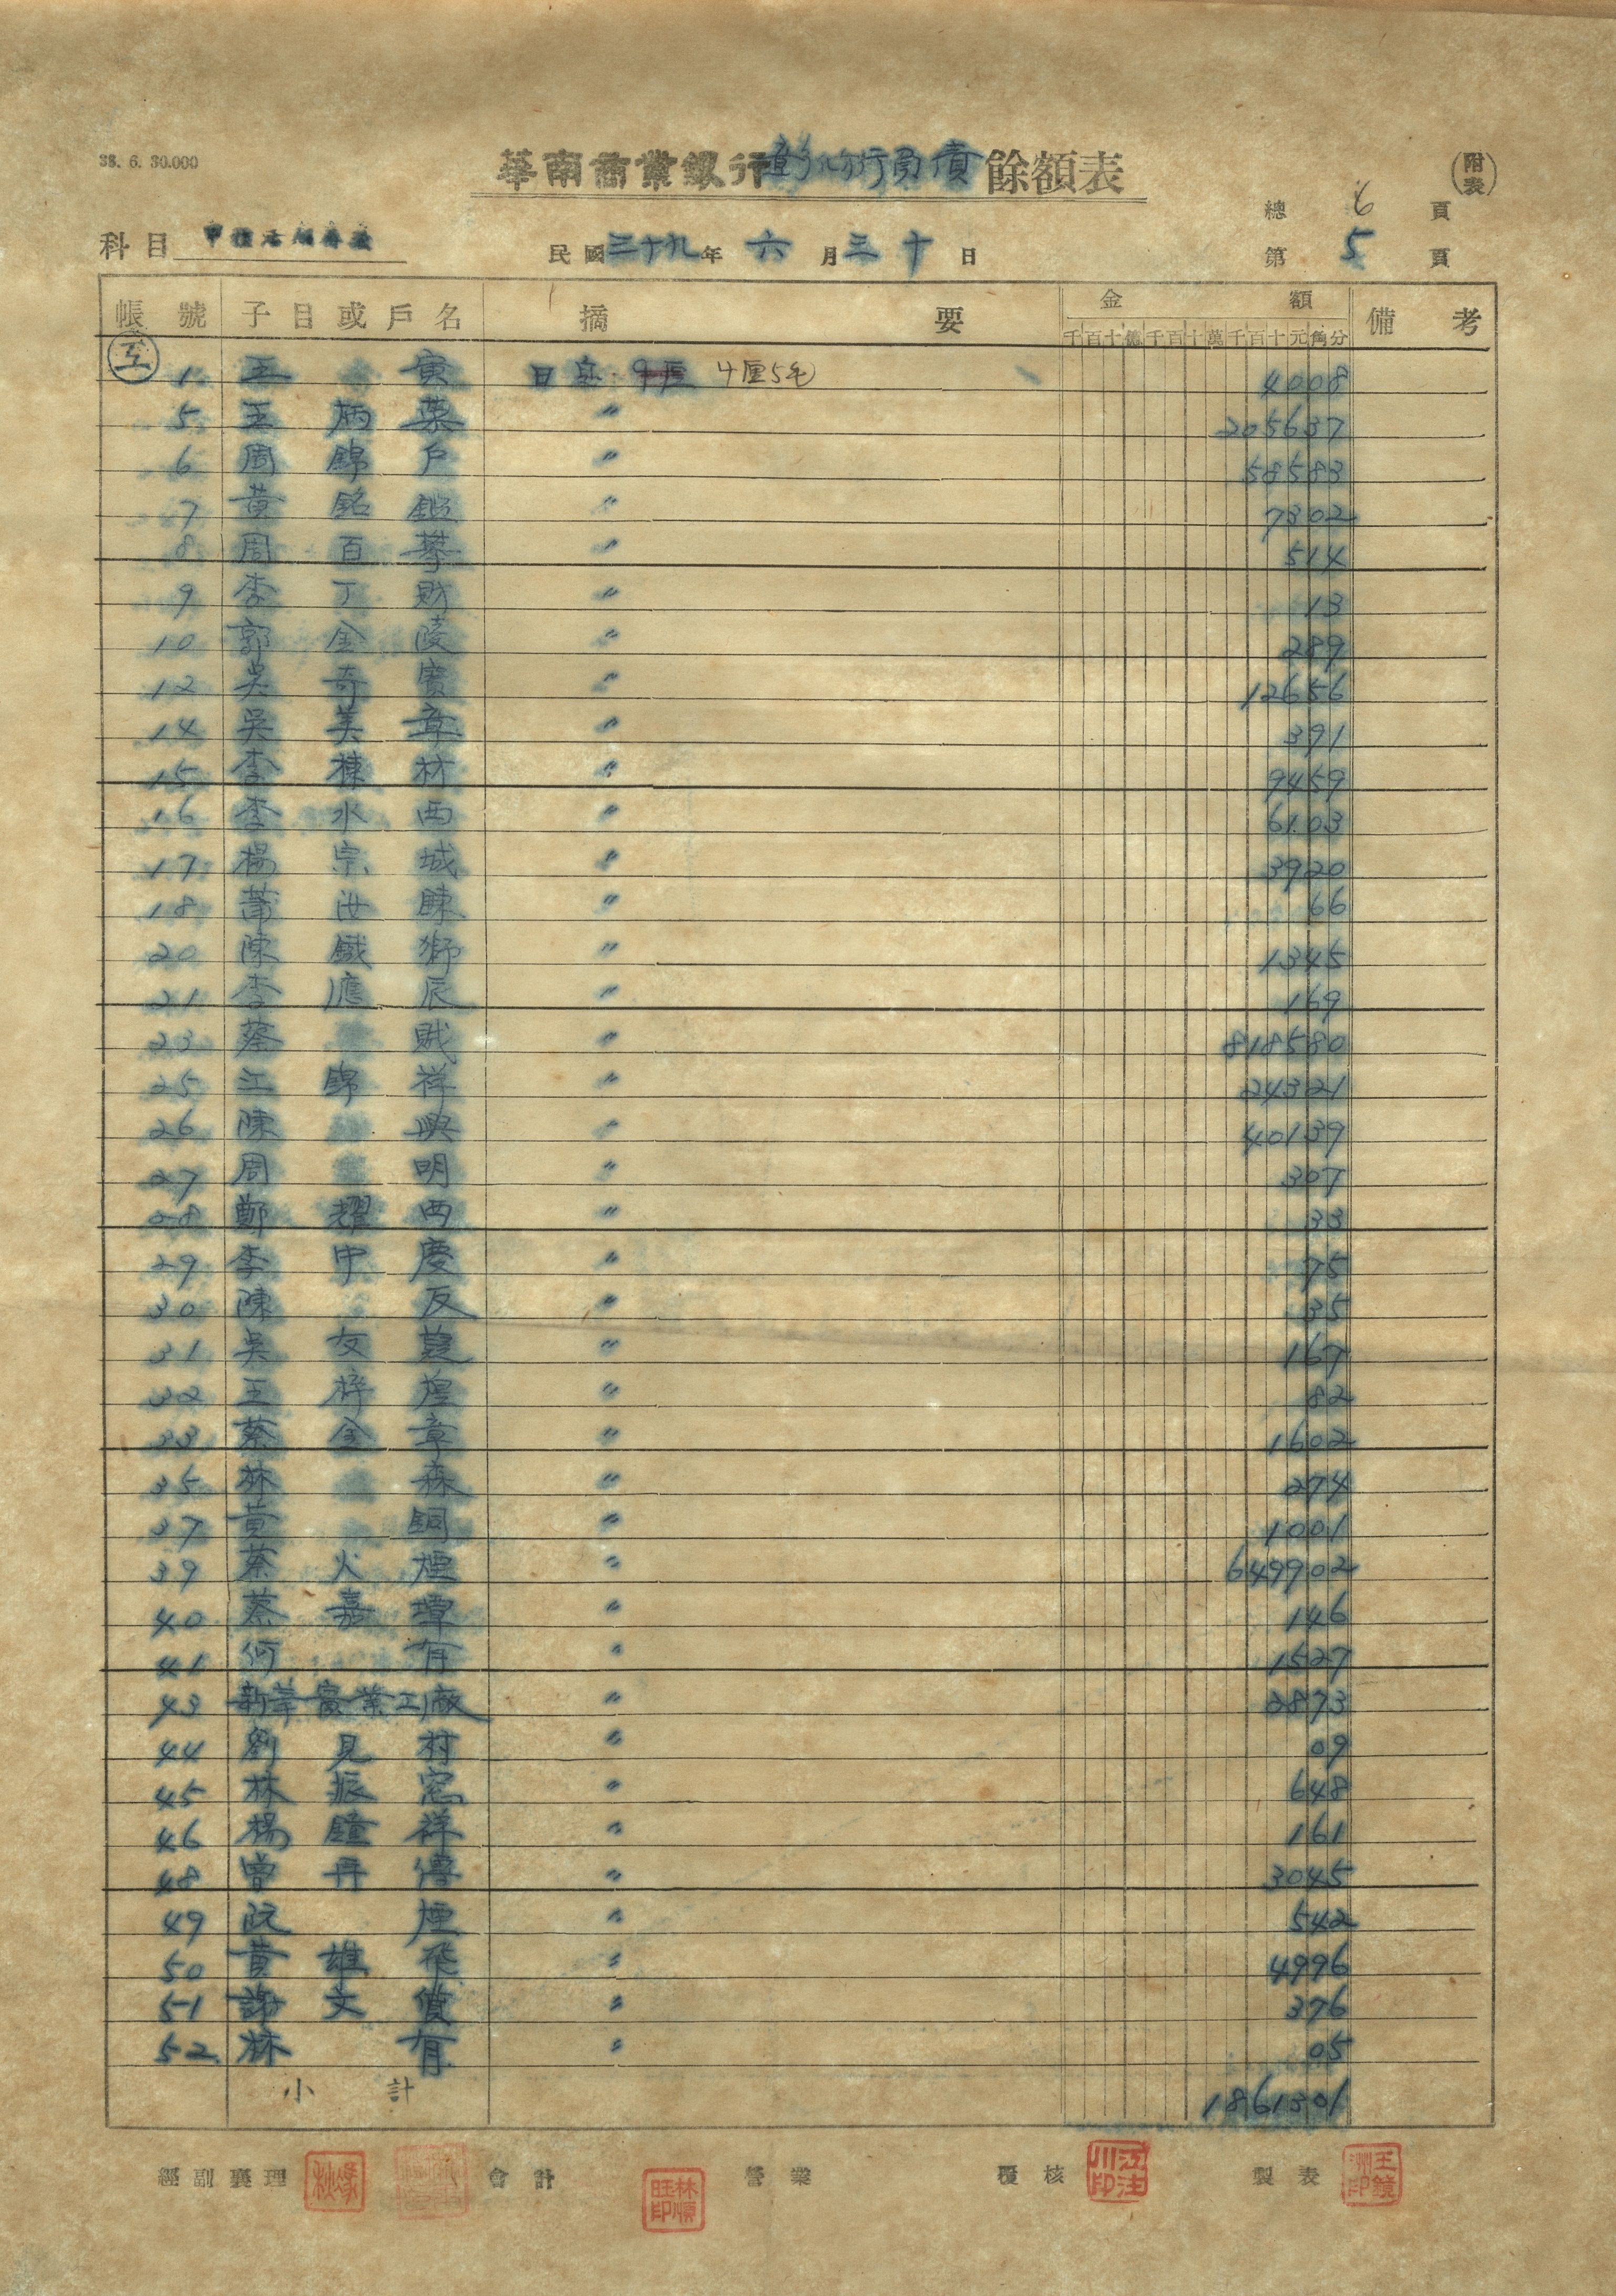 38. 6. 30.000
華南商業銀行彰化分行負債餘額表
附表
總 6 頁
科目 甲種活期存款
民國三十九年六月三十日
第 5 頁
帳號 子目或戶名 摘要 金額 備考
千百十億千百十萬千百十元角分
1 王寅 日息 4厘5毛 4008
5 王炳榮 〃 205637
6 周錦戶 〃 58583
7 黃銘鑑 〃 7302
8 周百 〃 514
9 李丁財 〃 13
10 郭金陵 〃 289
12 吳奇寶 〃 12656
14 吳美章 〃 391
15 李棟材 〃 9459
16 李水西 〃 6103
17 楊宗城 〃 3920
18 蕭汝 〃 66
20 陳鐵獅 〃 1345
21 李應辰 〃 169
23 蔡賊 〃 818580
25 江錦祥 〃 24321
26 陳興 〃 40139
27 周明 〃 307
28 鄭耀西 〃 33
29 李中慶 〃 75
30 陳反 〃 35
31 吳友 〃 167
32 王梓煌 〃 82
33 蔡金章 〃 1602
35 林森 〃 274
37 黃銅 〃 1001
39 蔡火煙 〃 649902
40 蔡嘉璋 〃 146
41 何有 〃 1527
43 新華窯業工廠 〃 2873
44 劉見村 〃 09
45 林振 〃 648
46 楊鐘祥 〃 161
48 曾丹 〃 3045
49 阮煙 〃 542
50 黃雄飛 〃 4996
51 謝文 〃 376
52 林有 〃 05
小計 1861301
經副襄理 會計 林順旺印 營業 覆核 江注川印 製表 王鏡洲印